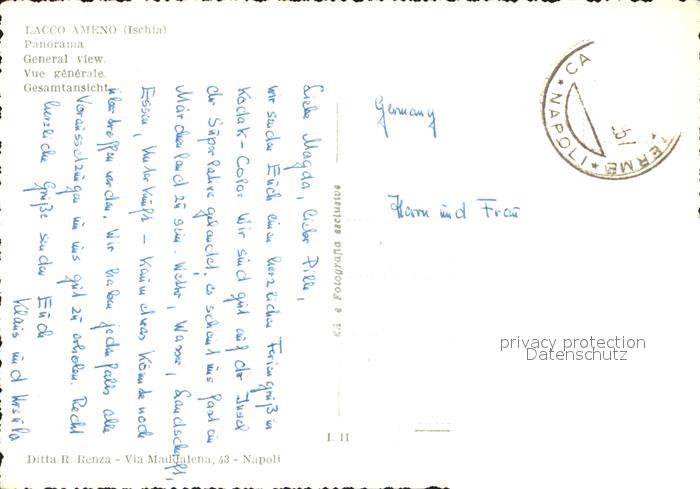 LACCO AMENO (Ischia)
Panorama
General view.
Vue générale.
Gesamtansicht.
Liebe Magda, lieber Pille,
wir senden Euch einen herzlichen Feriengruß in
Kodak-Color. Wir sind gut auf der Insel
der Superlative gelandet, es scheint uns fast ein
Märchenland zu sein. Wetter, Wasser, Landschaft,
Essen, Unterkunft - kaum etwas könnte noch
übertroffen werden. Wir haben jedenfalls alle
Voraussetzungen um uns gut zu erholen. Recht
herzliche Grüße senden Euch
Klaus und Ursula
Ediz. e Fotografia
Germany
Herrn und Frau
CA
NAPOLI
TERME
privacy protection
Datenschutz
I. 11
Ditta R. Renza - Via Maddalena, 43 - Napoli